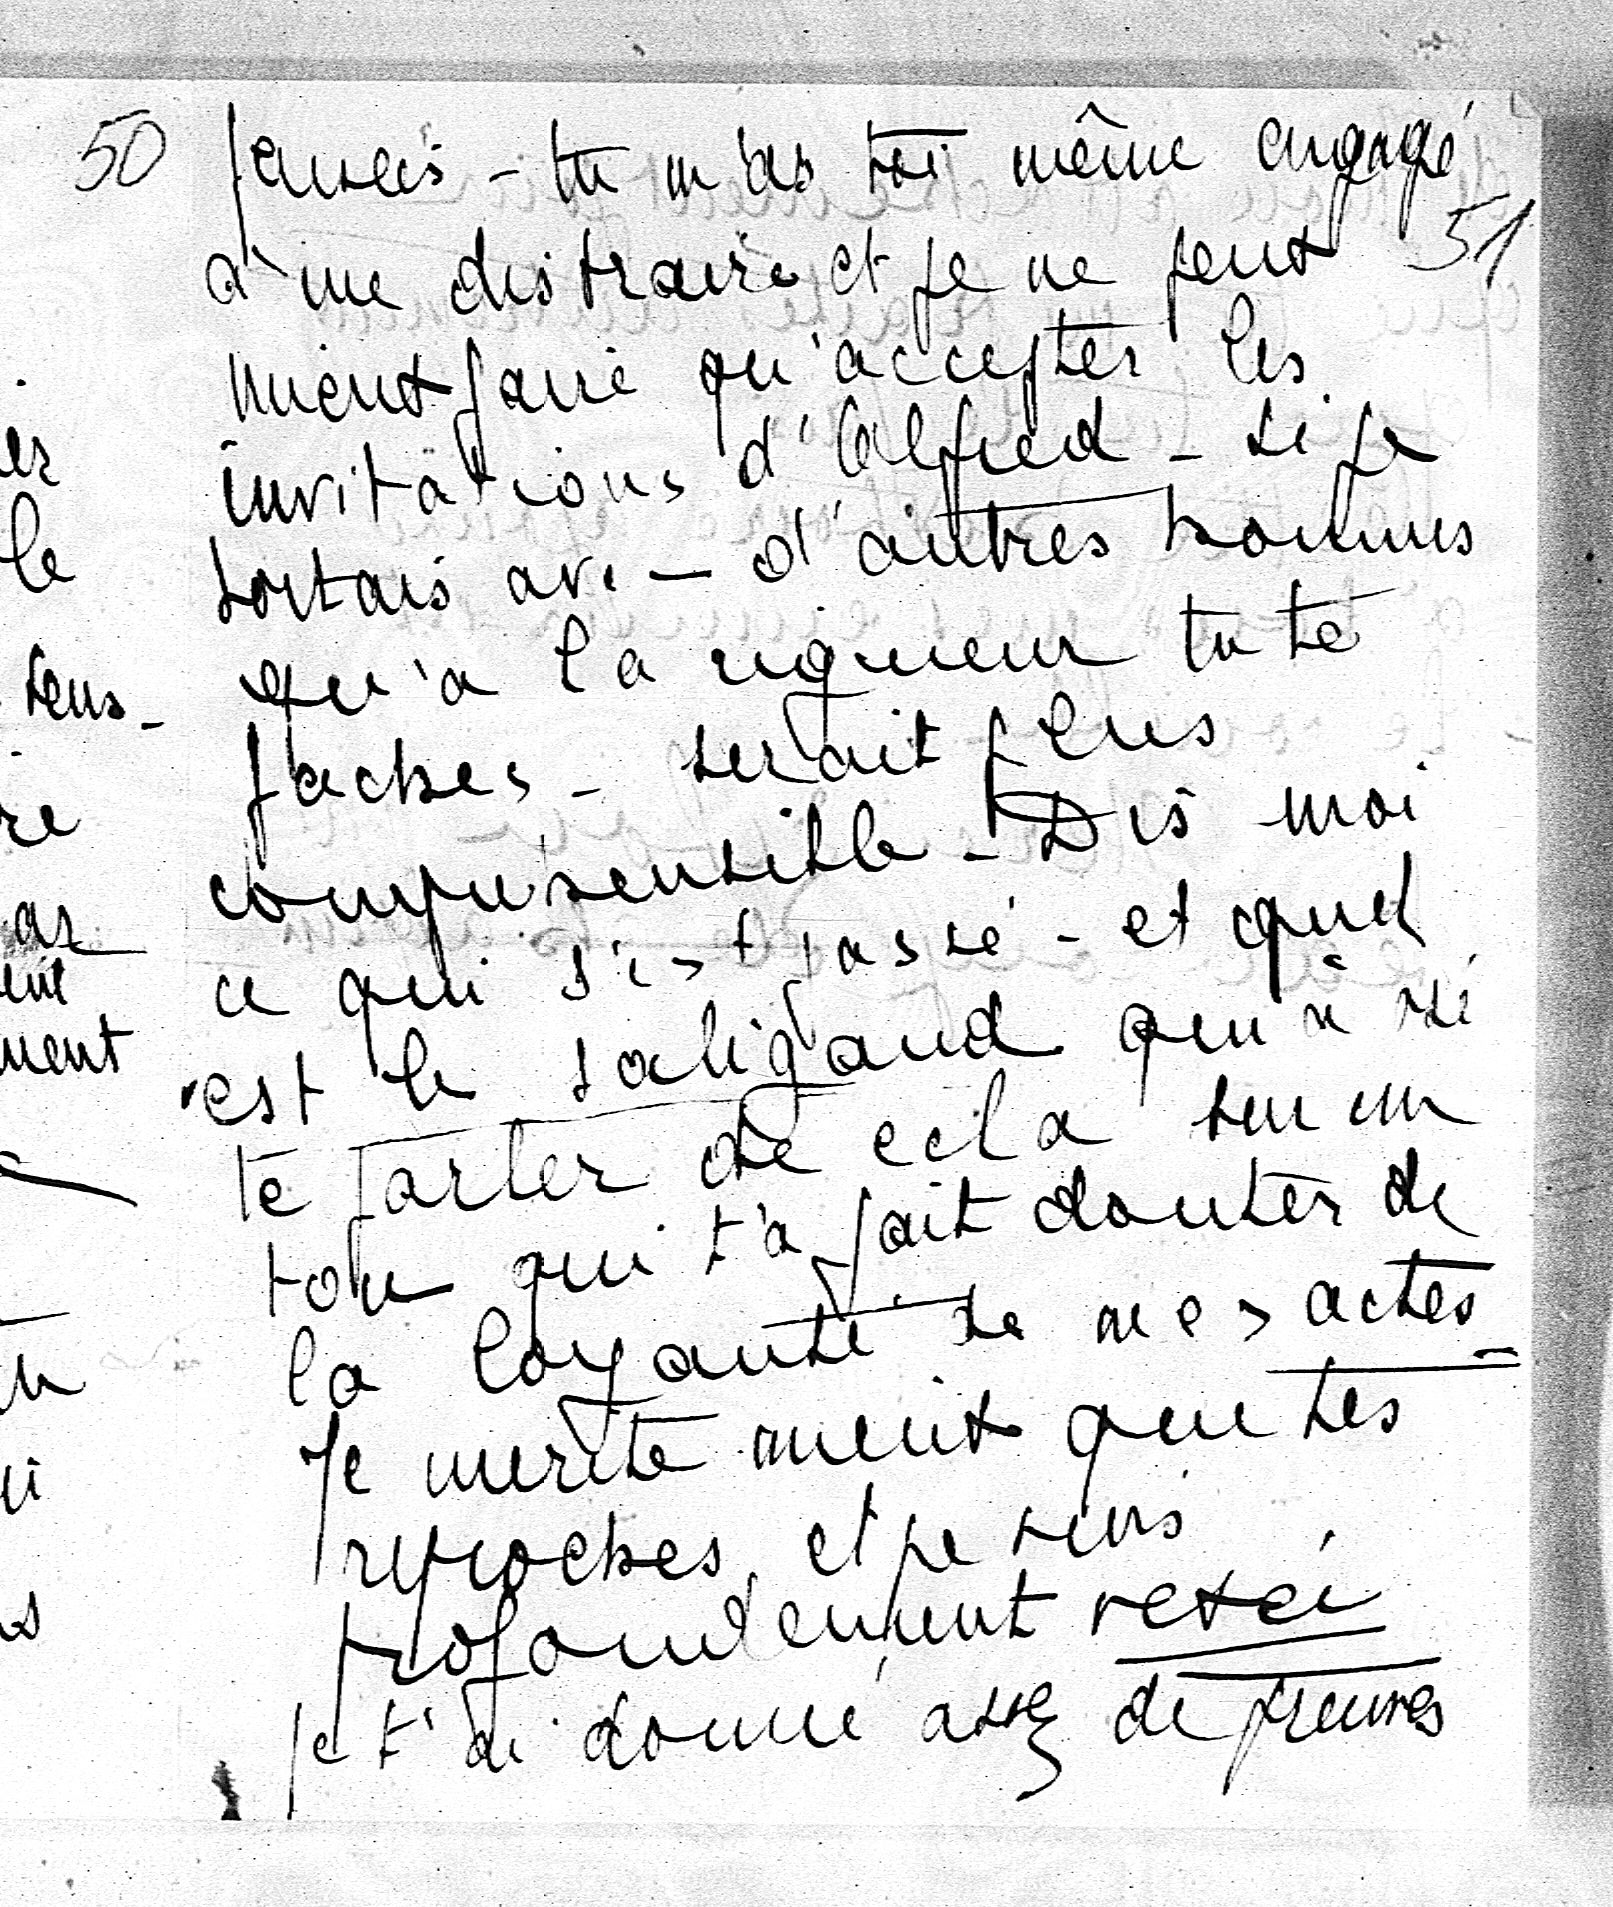 50 pensées - tu m'as toi même engagé
51
à me distraire et je ne peux
mieux faire qu'accepter les
invitations d'Alfred - si je
sortais avec - d'autres hommes
qu'à la rigueur tu te
faches - serait plus
compréhensible - Dis moi
ce qui s'est passé - et quel
est le saligaud qui a osé
te parler de cela sur un
ton qui t'a fait douter de
la loyauté de mes actes -
Je merite mieux que tes
reproches et je suis
profondement vexé
je t'ai donné assez de preuves
er
le
sens -
re
ar
ment
s